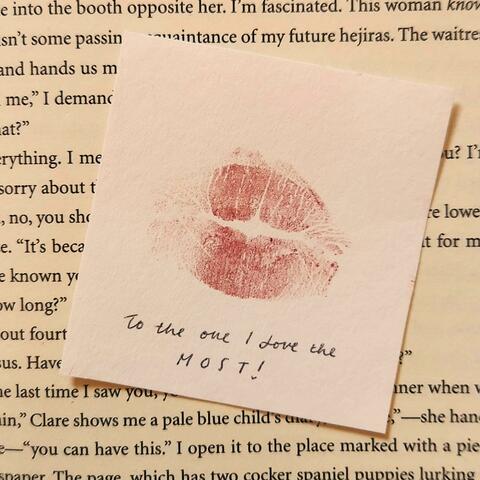 e into the booth opposite her. I'm fascinated. This woman know
sn't some passin quaintance of my future hejiras. The waitre
and hands us m
me," I demand
hat?"
erything. I me u? I'
sorry about t
, no, you sho re lowe
e. "It's beca t for m
e known yo
ow long?"
out fourt
sus. Have ?"
he last time I saw you, y nner when
in," Clare shows me a pale blue child's dia ,"—she han
e—"you can have this." I open it to the place marked with a pie
spaper. The page, which has two cocker spaniel puppies lurking
To the one I love the
MOST!